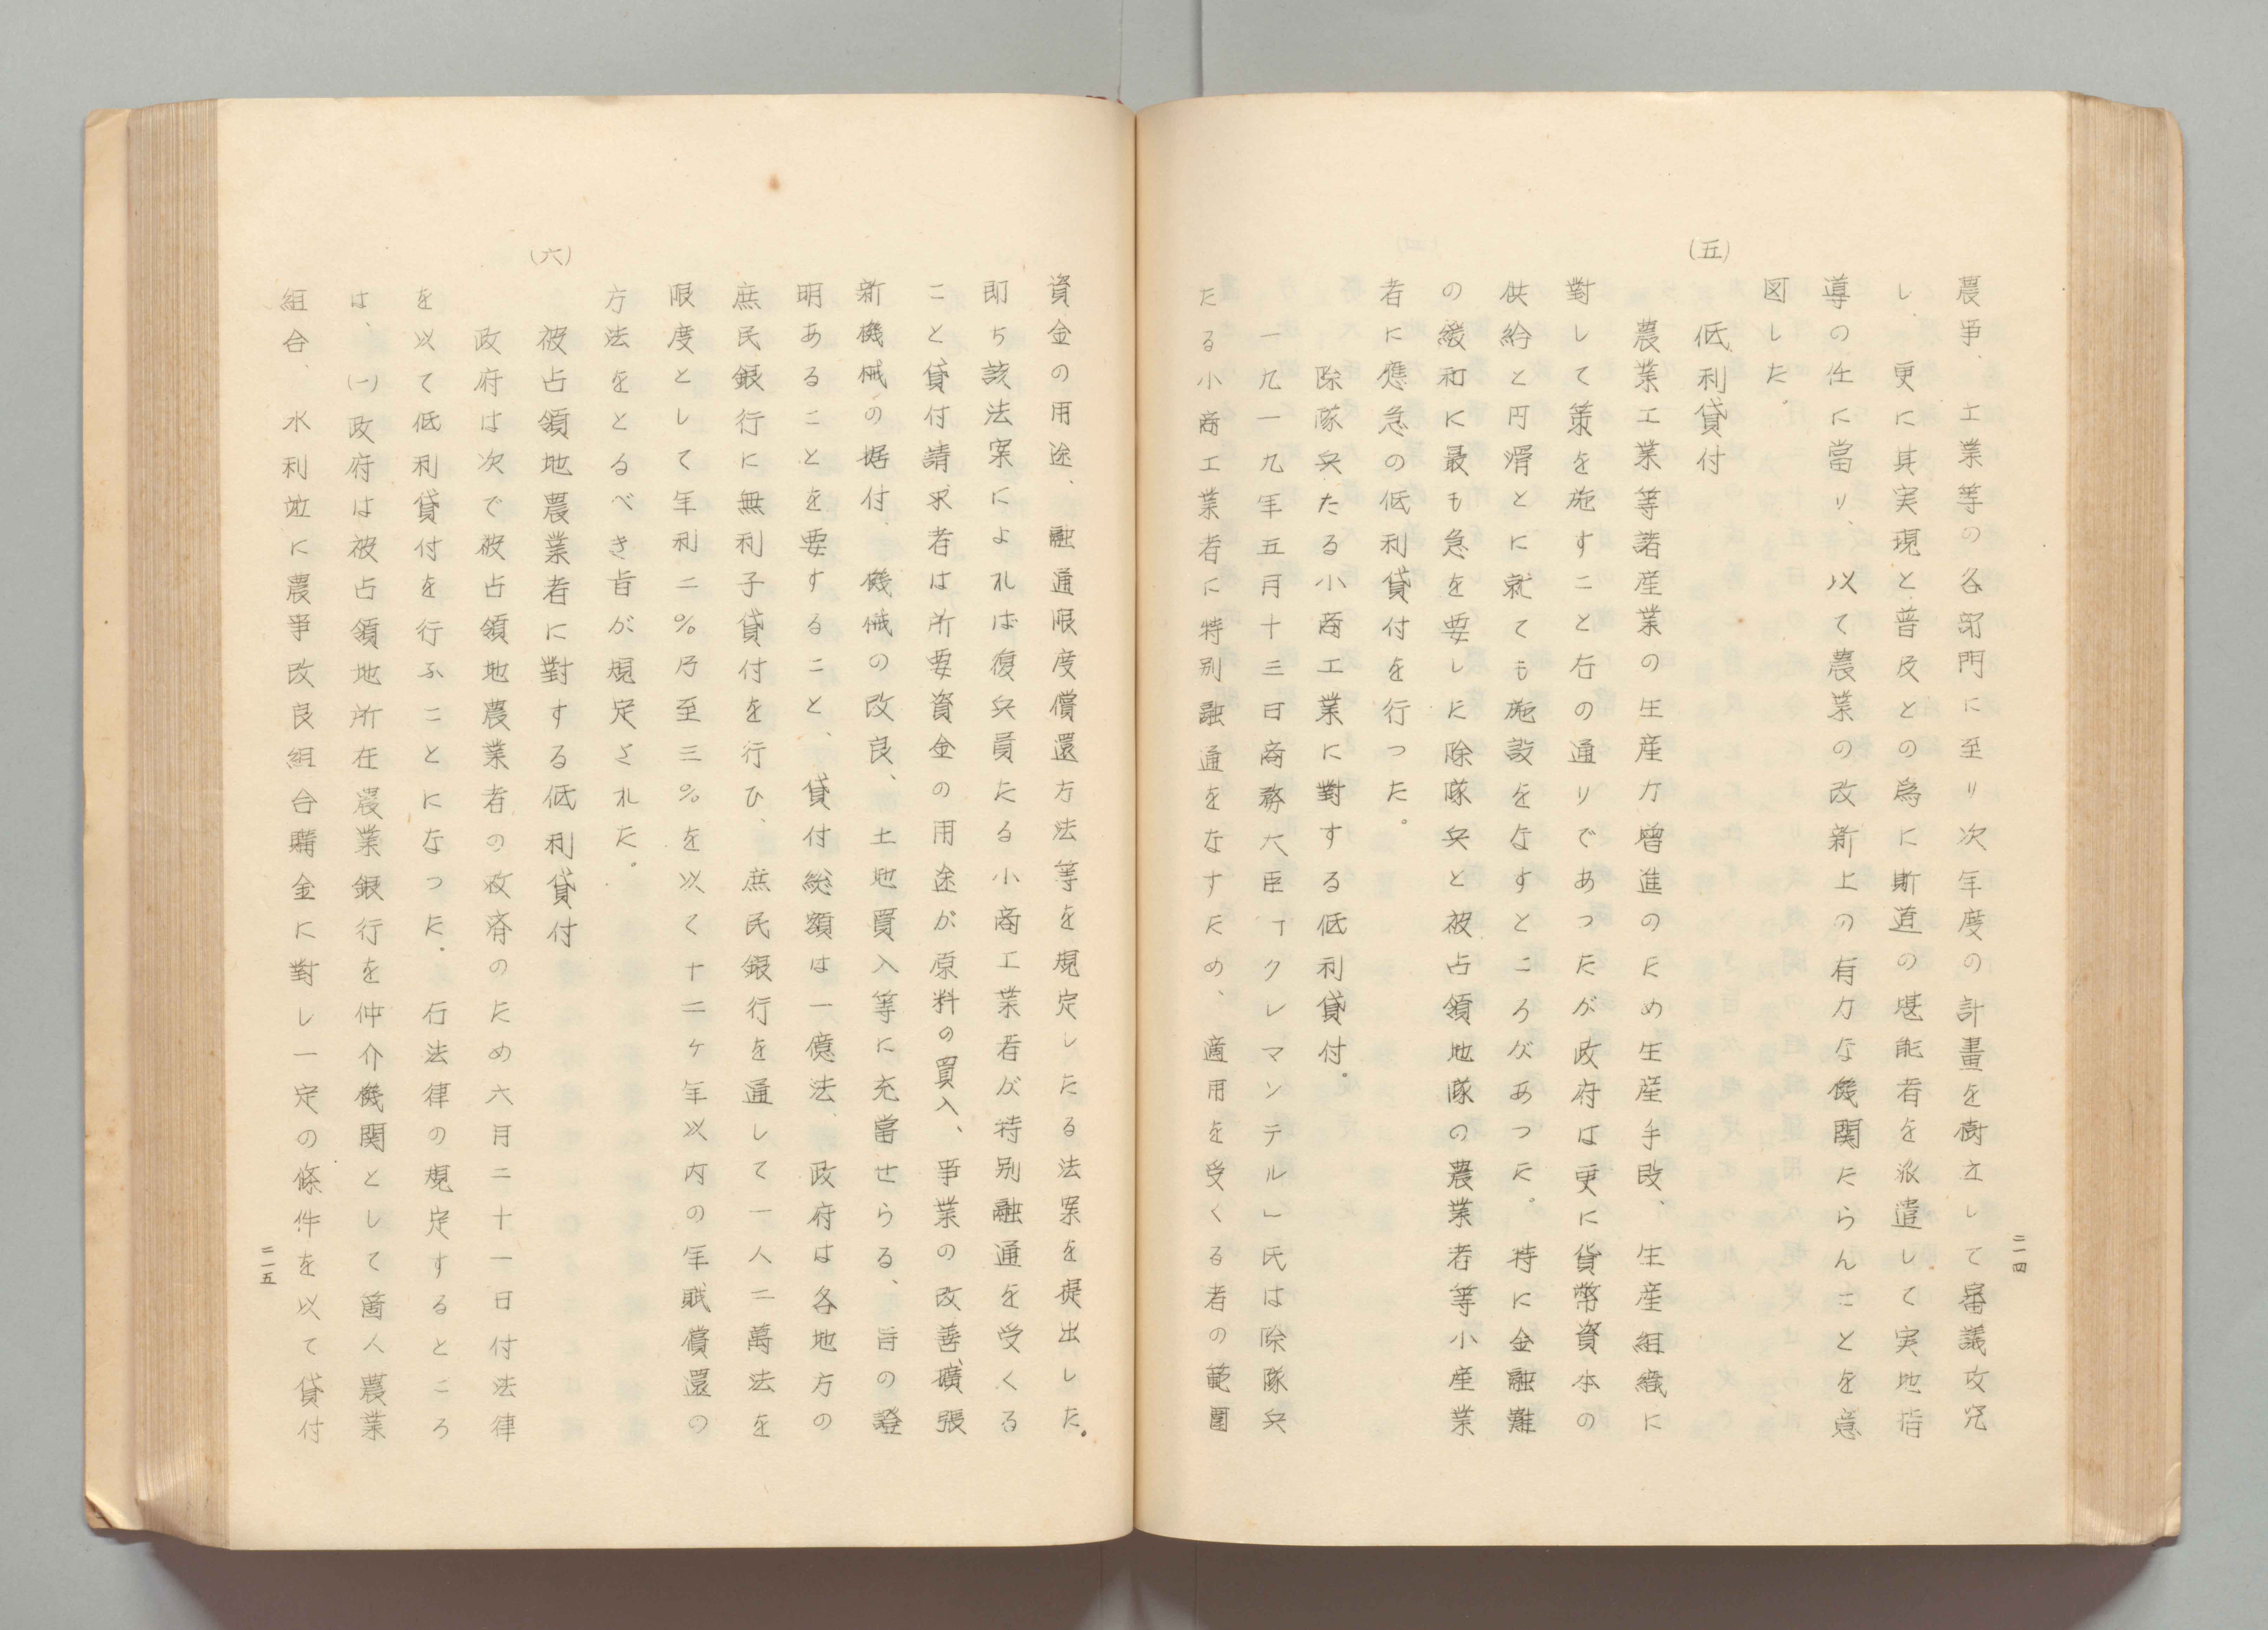 二一四
農事、工業等の各部門に至り次年度の計畫を樹立して審議攻究
し、更に其実現と普及との為に斯道の堪能者を派遣して実地指
導の任に當り、以て農業の改新上の有力な機関たらんことを意
図した。
(五)
低利貸付
農業工業等諸産業の生産力増進のため生産手段、生産組織に
對して策を施すこと右の通りであつたが政府は更に貨幣資本の
供給と円滑とに就ても施設をなすところがあつた。特に金融難
の緩和に最も急を要しに除隊兵と被占領地隊の農業者等小産業
者に應急の低利貸付を行つた。
除隊兵たる小商工業に對する低利貸付。
一九一九年五月十三日商務大臣「クレマンテル」氏は除隊兵
たる小商工業者に特別融通をなすため、適用を受くる者の範圍
資金の用途、融通限度償還方法等を規定したる法案を提出した。
即ち該法案によれば復兵員たる小商工業者が特別融通を受くる
こと貸付請求者は所要資金の用途が原料の買入、事業の改善礦張
新機械の据付、機械の改良、土地買入等に充當せらる、旨の證
明あることを要すること、貸付総額は一億法、政府は各地方の
庶民銀行に無利子貸付を行ひ、庶民銀行を通して一人二萬法を
限度として年利二%乃至三%を以て十二ケ年以内の年賦償還の
方法をとるべき旨が規定された。
(六)
被占領地農業者に對する低利貸付
政府は次で被占領地農業者の救済のため六月二十一日付法律
を以て低利貸付を行ふことになつた。右法律の規定するところ
は、(一)政府は被占領地所在農業銀行を仲介機関として箇人農業
組合、水利竝に農事改良組合購金に對し一定の條件を以て貸付
二一五